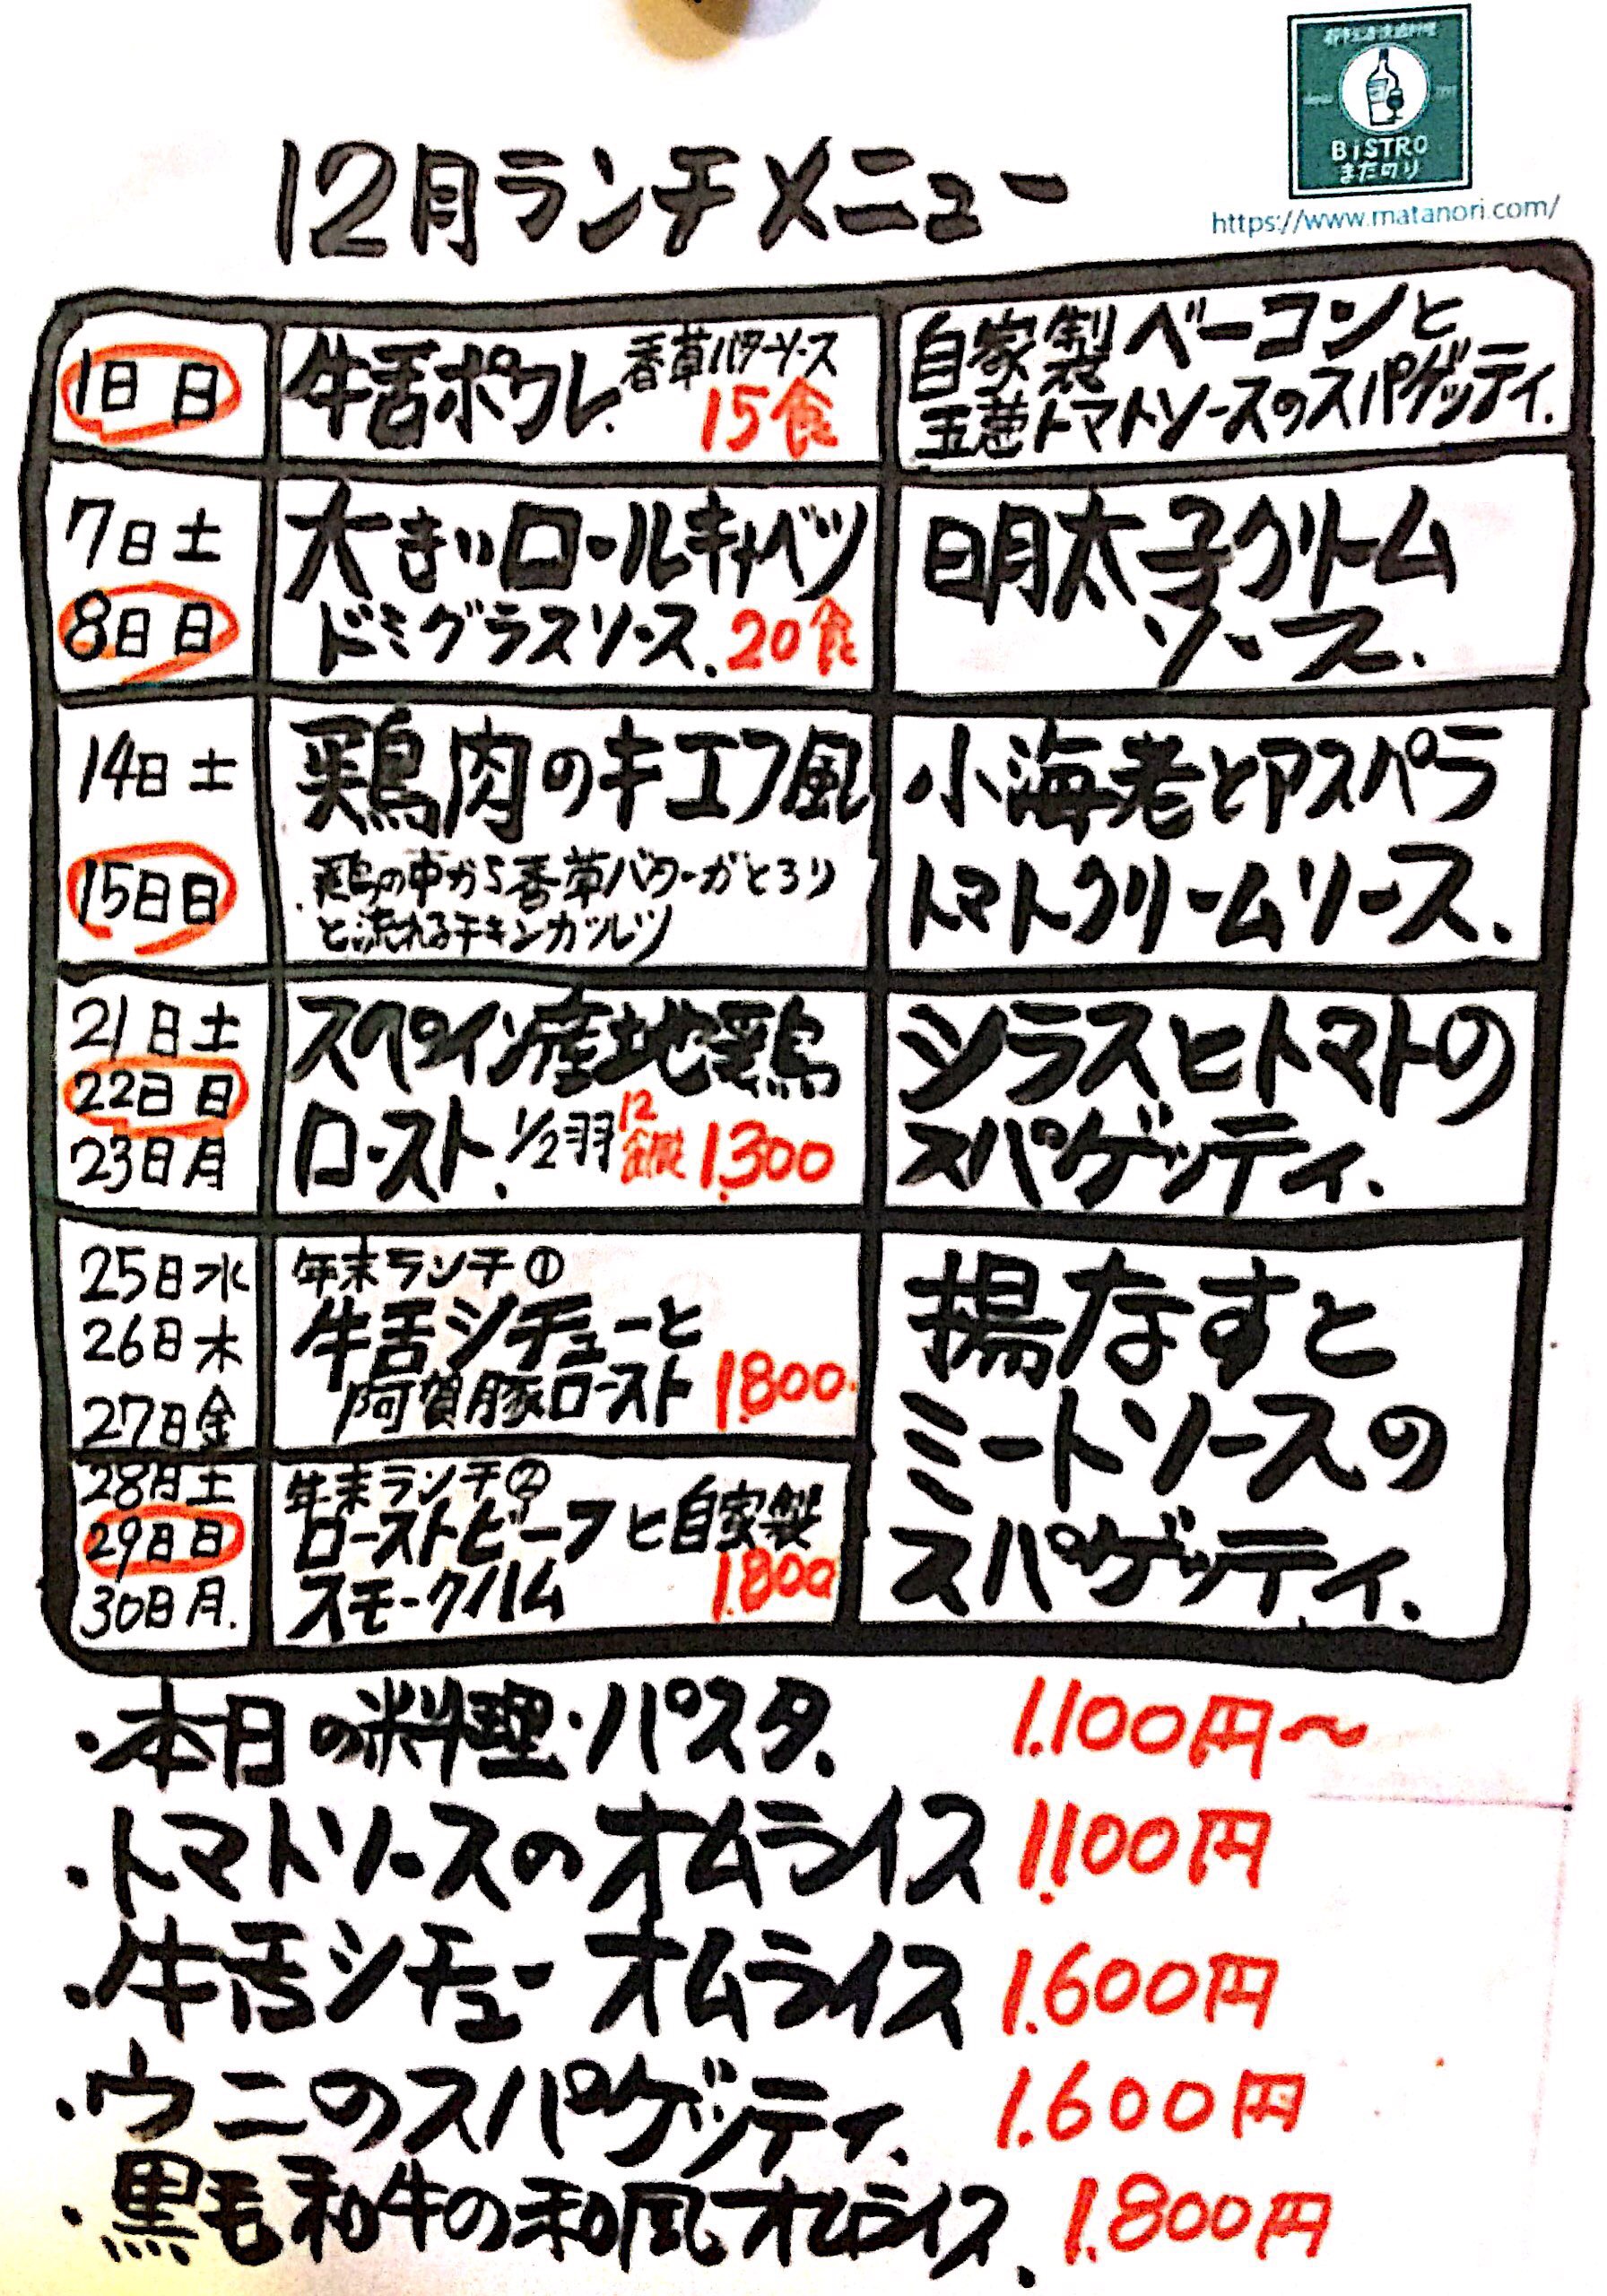 BiSTRO
またのり
https://www.matanori.com/
12月ランチメニュー
1日 日
牛舌ポワレ 香草バターソース
15食
自家製ベーコンと
玉葱トマトソースのスパゲッティ.
7日 土
8日 日
大きいロールキャベツ
ドミグラスソース. 20食
明太子クリーム
ソース.
14日 土
15日 日
鶏肉のキエフ風
鶏の中から香草バターがとろり
と流れるチキンカツレツ
小海老とアスパラ
トマトクリームソース.
21日 土
22日 日
23日 月
スペイン産地鶏
ロースト. 1/2羽 12食限 1.300
シラスとトマトの
スパゲッティ.
25日 水
26日 木
27日 金
年末ランチ①
牛舌シチューと
阿賀豚ロースト 1.800.
揚なすと
ミートソースの
スパゲッティ.
28日 土
29日 日
30日 月.
年末ランチ②
ローストビーフと自家製
スモークハム 1.800
・本日の料理・パスタ. 1.100円〜
・トマトソースのオムライス 1.100円
・牛舌シチューオムライス 1.600円
・ウニのスパゲッティ. 1.600円
・黒毛和牛の和風オムライス. 1.800円